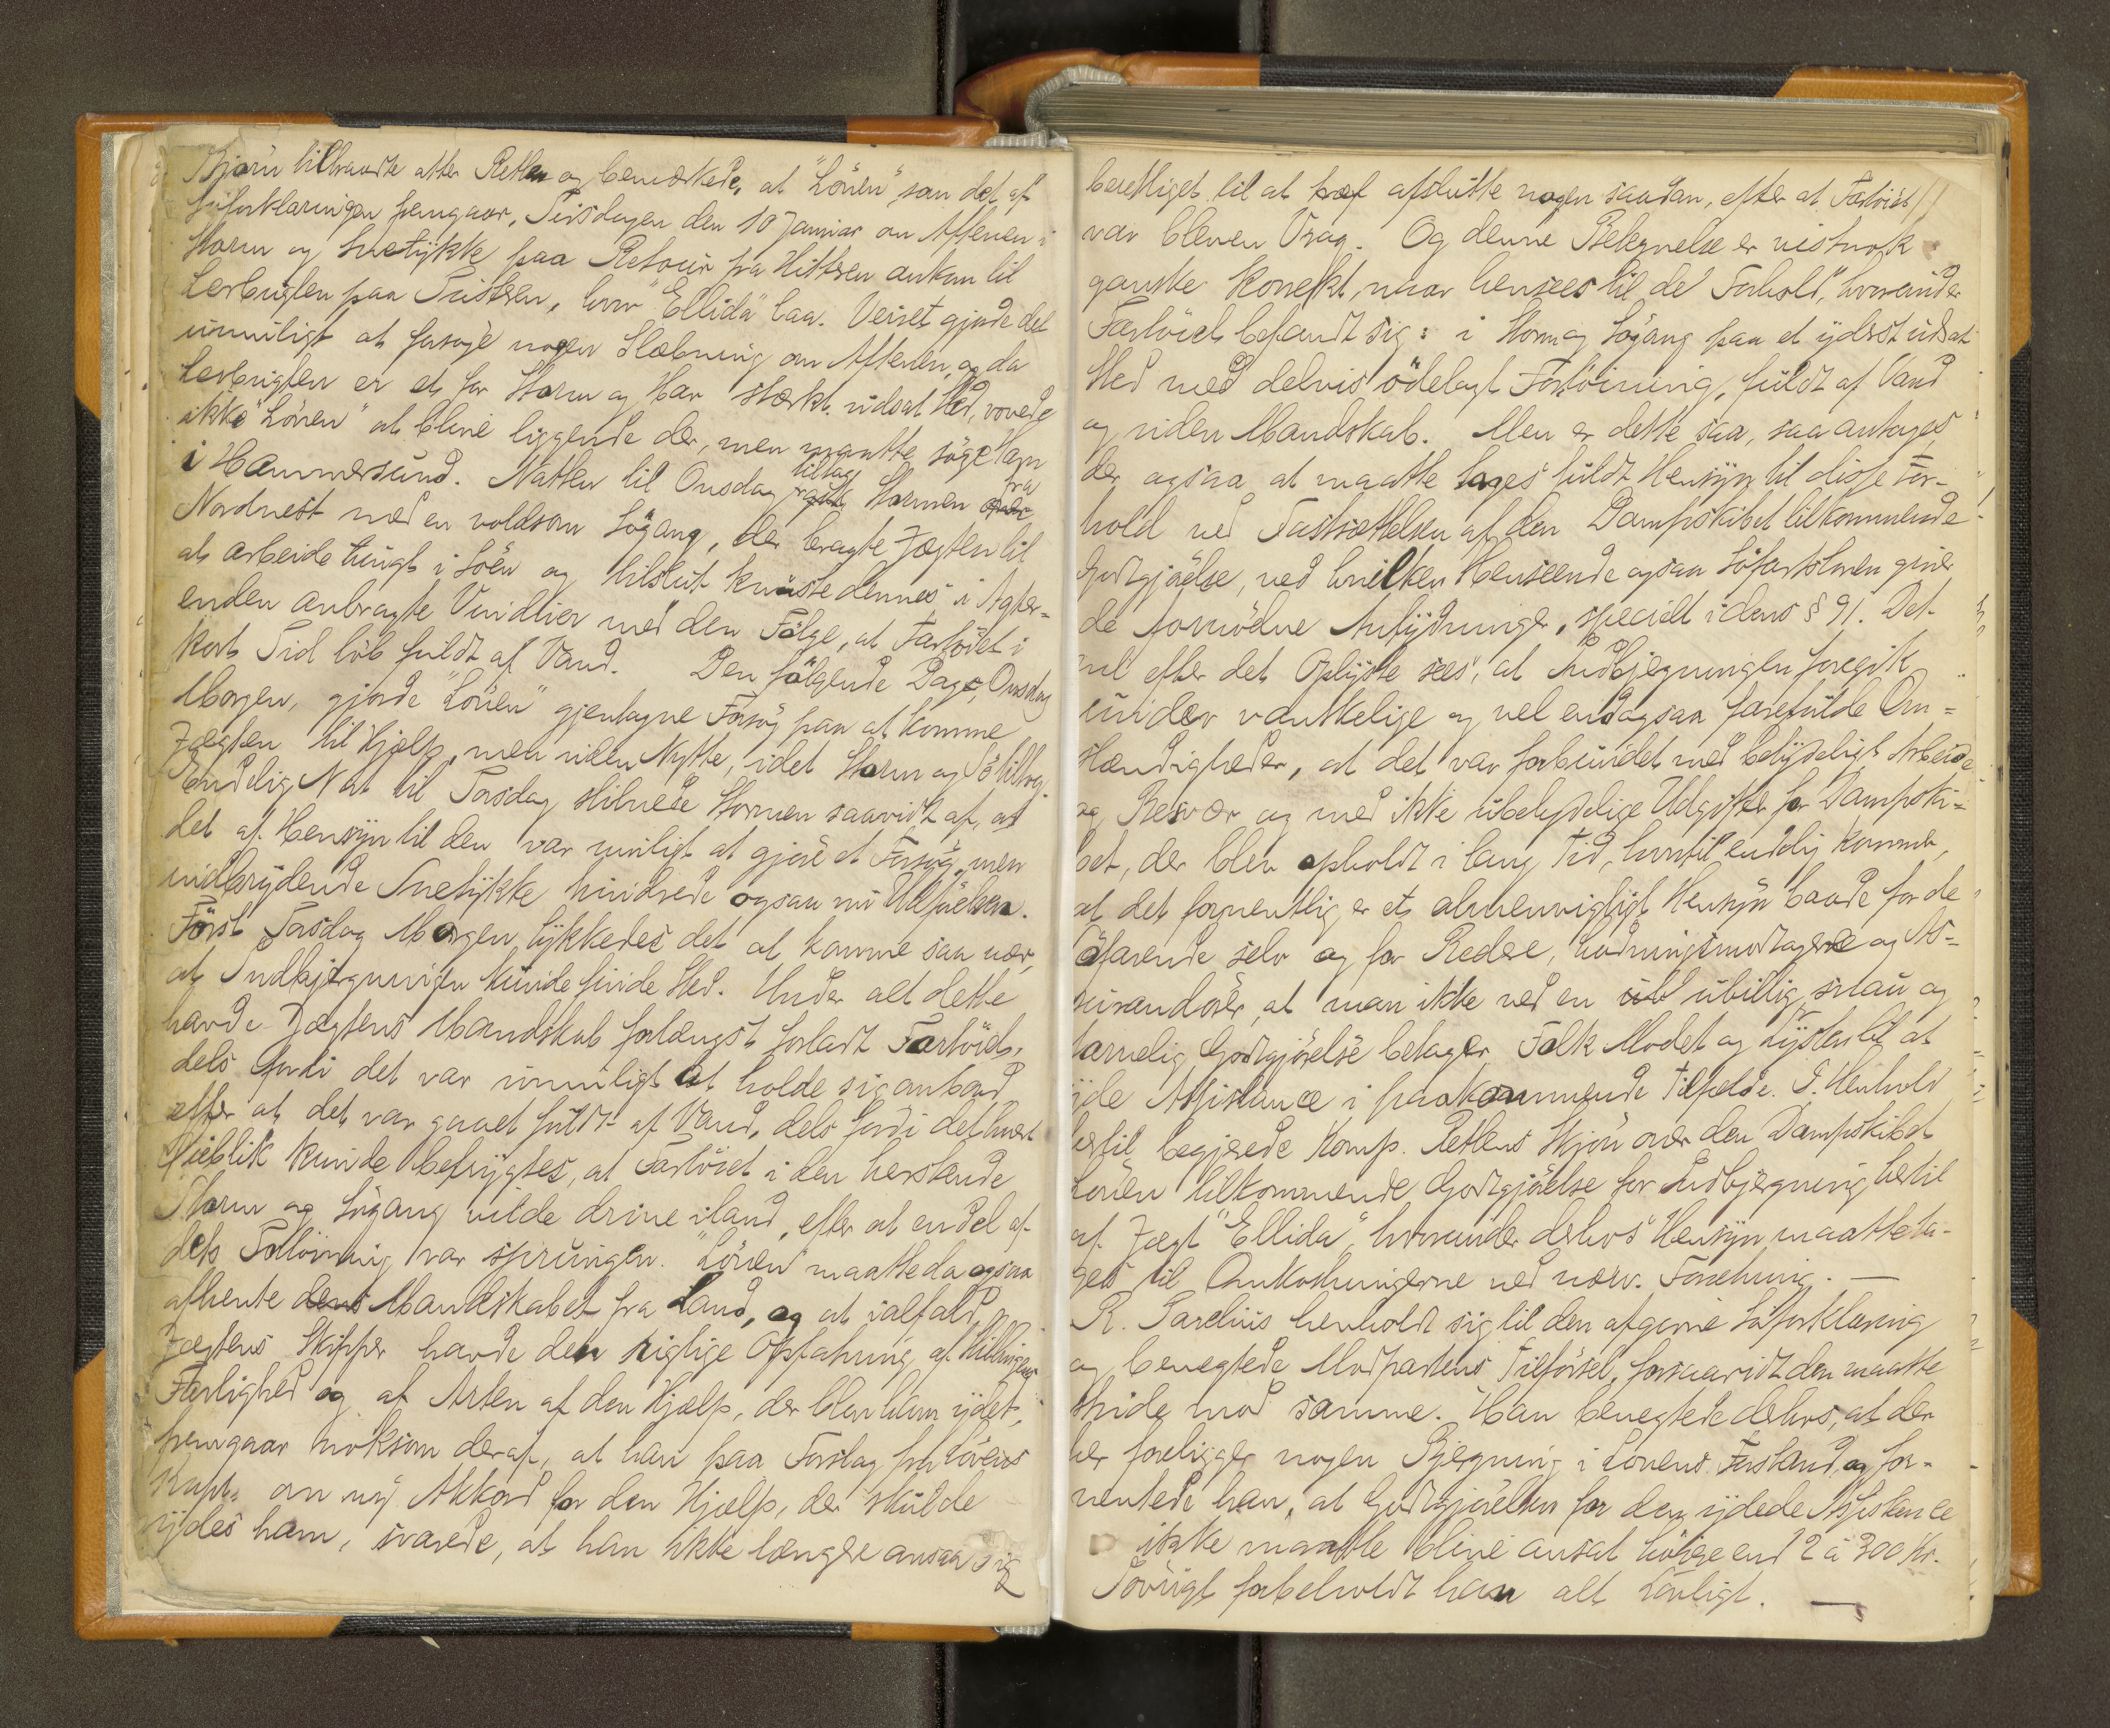 Bjørn tiltraadte atter Retten og bemærkede, at "Löven", som det af
Søforklaringen fremgaar, Tirsdagen den 10 Januar om Aftenen i
Storm og Snetykke paa Retour fra Hitteren ankom til
Lerbugten paa Tustren, hvor "Ellida" laa. Veiret gjorde det
umuligt at forsøge nogen Slæbning om Aftenen, og da
Lerbugten er et for Storm og Hav stærkt udsat Sted, vovede
ikke "Löven" at blive liggende der, men maatte söge Havn
i Hammersund. Natten til Onsdag tiltog Stormen fra
Nordvest med en voldsom Sögang, der bragte Jægten til
at arbeide tungt i Söen og tilslut knuste dennes i Agter-
enden anbragte Vindlier med den Fölge, at Fartöiet i
kort Tid löb fuldt af Vand. Den fölgende Dag, Onsdag
Morgen, gjorde "Löven" gjentagne Forsög paa at komme
Jægten til Hjælp, men uden Nytte, idet Storm og Sö tiltog.
Endelig Nat til Torsdag stilnede Stormen saavidt af, at
det af Hensyn til den var muligt at gjöre et Forsög, men
indbrydende Snetykke hindrede ogsaa nu Udförelsen.
Först Torsdag Morgen lykkedes det at komme saa nær,
at Indbjergningen kunde finde Sted. Under alt dette
havde Jægtens Mandskab forlængst forladt Fartöiet,
dels fordi det var umuligt at holde sig ombord,
efter at det var gaaet fuldt af Vand, dels fordi det hvert
Öieblik kunde befrygtes, at Fartöiet i den herskende
Storm og Sögang vilde drive iland, efter at en del af
dets Fortöining var sprungen. "Löven" maatte da ogsaa
afhente dens Mandskabet fra Land, og at ialfald
Jægtens Skipper havde den rigtige Opfatning af Stillingens
Farlighed og af Arten af den Hjælp, der blev ham ydet,
fremgaar noksom deraf, at han paa Forslag fra Lövens
Kapt. om ny Akkord for den Hjælp, der skulde
ydes ham, svarede, at han ikke længere ansaa sig
berettiget til at træf afslutte nogen saadan, efter at Fartöiet
var bleven Vrag. Og denne Betegnelse er vistnok
ganske korrekt, naar henses til de Forhold, hvorunder
Fartöiet befandt sig: i Storm og Sögang paa et yderst udsat
Sted med delvis ödelagt Fortöining, fuldt af Vand
og uden Mandskab. Men er dette saa, saa antages
der ogsaa at maatte tages fuldt Hensyn til disse For-
hold ved Fastsættelsen af den Dampskibet tilkommende
Godtgjörelse, ved hvilken Henseende ogsaa Söfartsloven giver
de fornödne Antydninger, specielt i dens § 91. Det
vil efter det Oplyste sees, at Indbjergningen foregik
under vanskelige og vel endogsaa farefulde Om-
stændigheder, at det var forbundet med betydeligt Arbeide
og Besvær og med ikke ubetydelige Udgifter for Dampski-
bet, der blev opholdt i lang Tid, hvortil endelig kommer,
at det formentlig er et almenvigtigt Hensyn baade for de
Söfarende selv og for Redere, Ladningsmodtagere og As-
surandörer, at man ikke ved en ubillig, snau og
karrig Godtgjörelse betager Folk Modet og Lysten til at
yde Assistance i paakommende Tilfælde. I Henhold
hertil begjerede Komp. Rettens Skjön over den Dampskibet
Löven tilkommende Godtgjörelse for Indbjergning hertil
af Jægt "Ellida", hvorunder derhos Hensyn maatte ta-
ges til Omkostningerne ved nærv. Forretning. —
R. Parelius henholdt sig til den afgivne Söforklaring
og benegtede Modpartens Tilförsel, forsaavidt den maatte
stride mod samme. Han benegtede derhos, at der
her foreligger nogen Bjergning i Lovens Forstand, og for-
ventede han, at Godtgjörelsen for den ydede Assistance
ikke maatte blive ansat höiere end 2 à 300 Kr.
Iövrigt forbeholdt han alt Lovligt. —